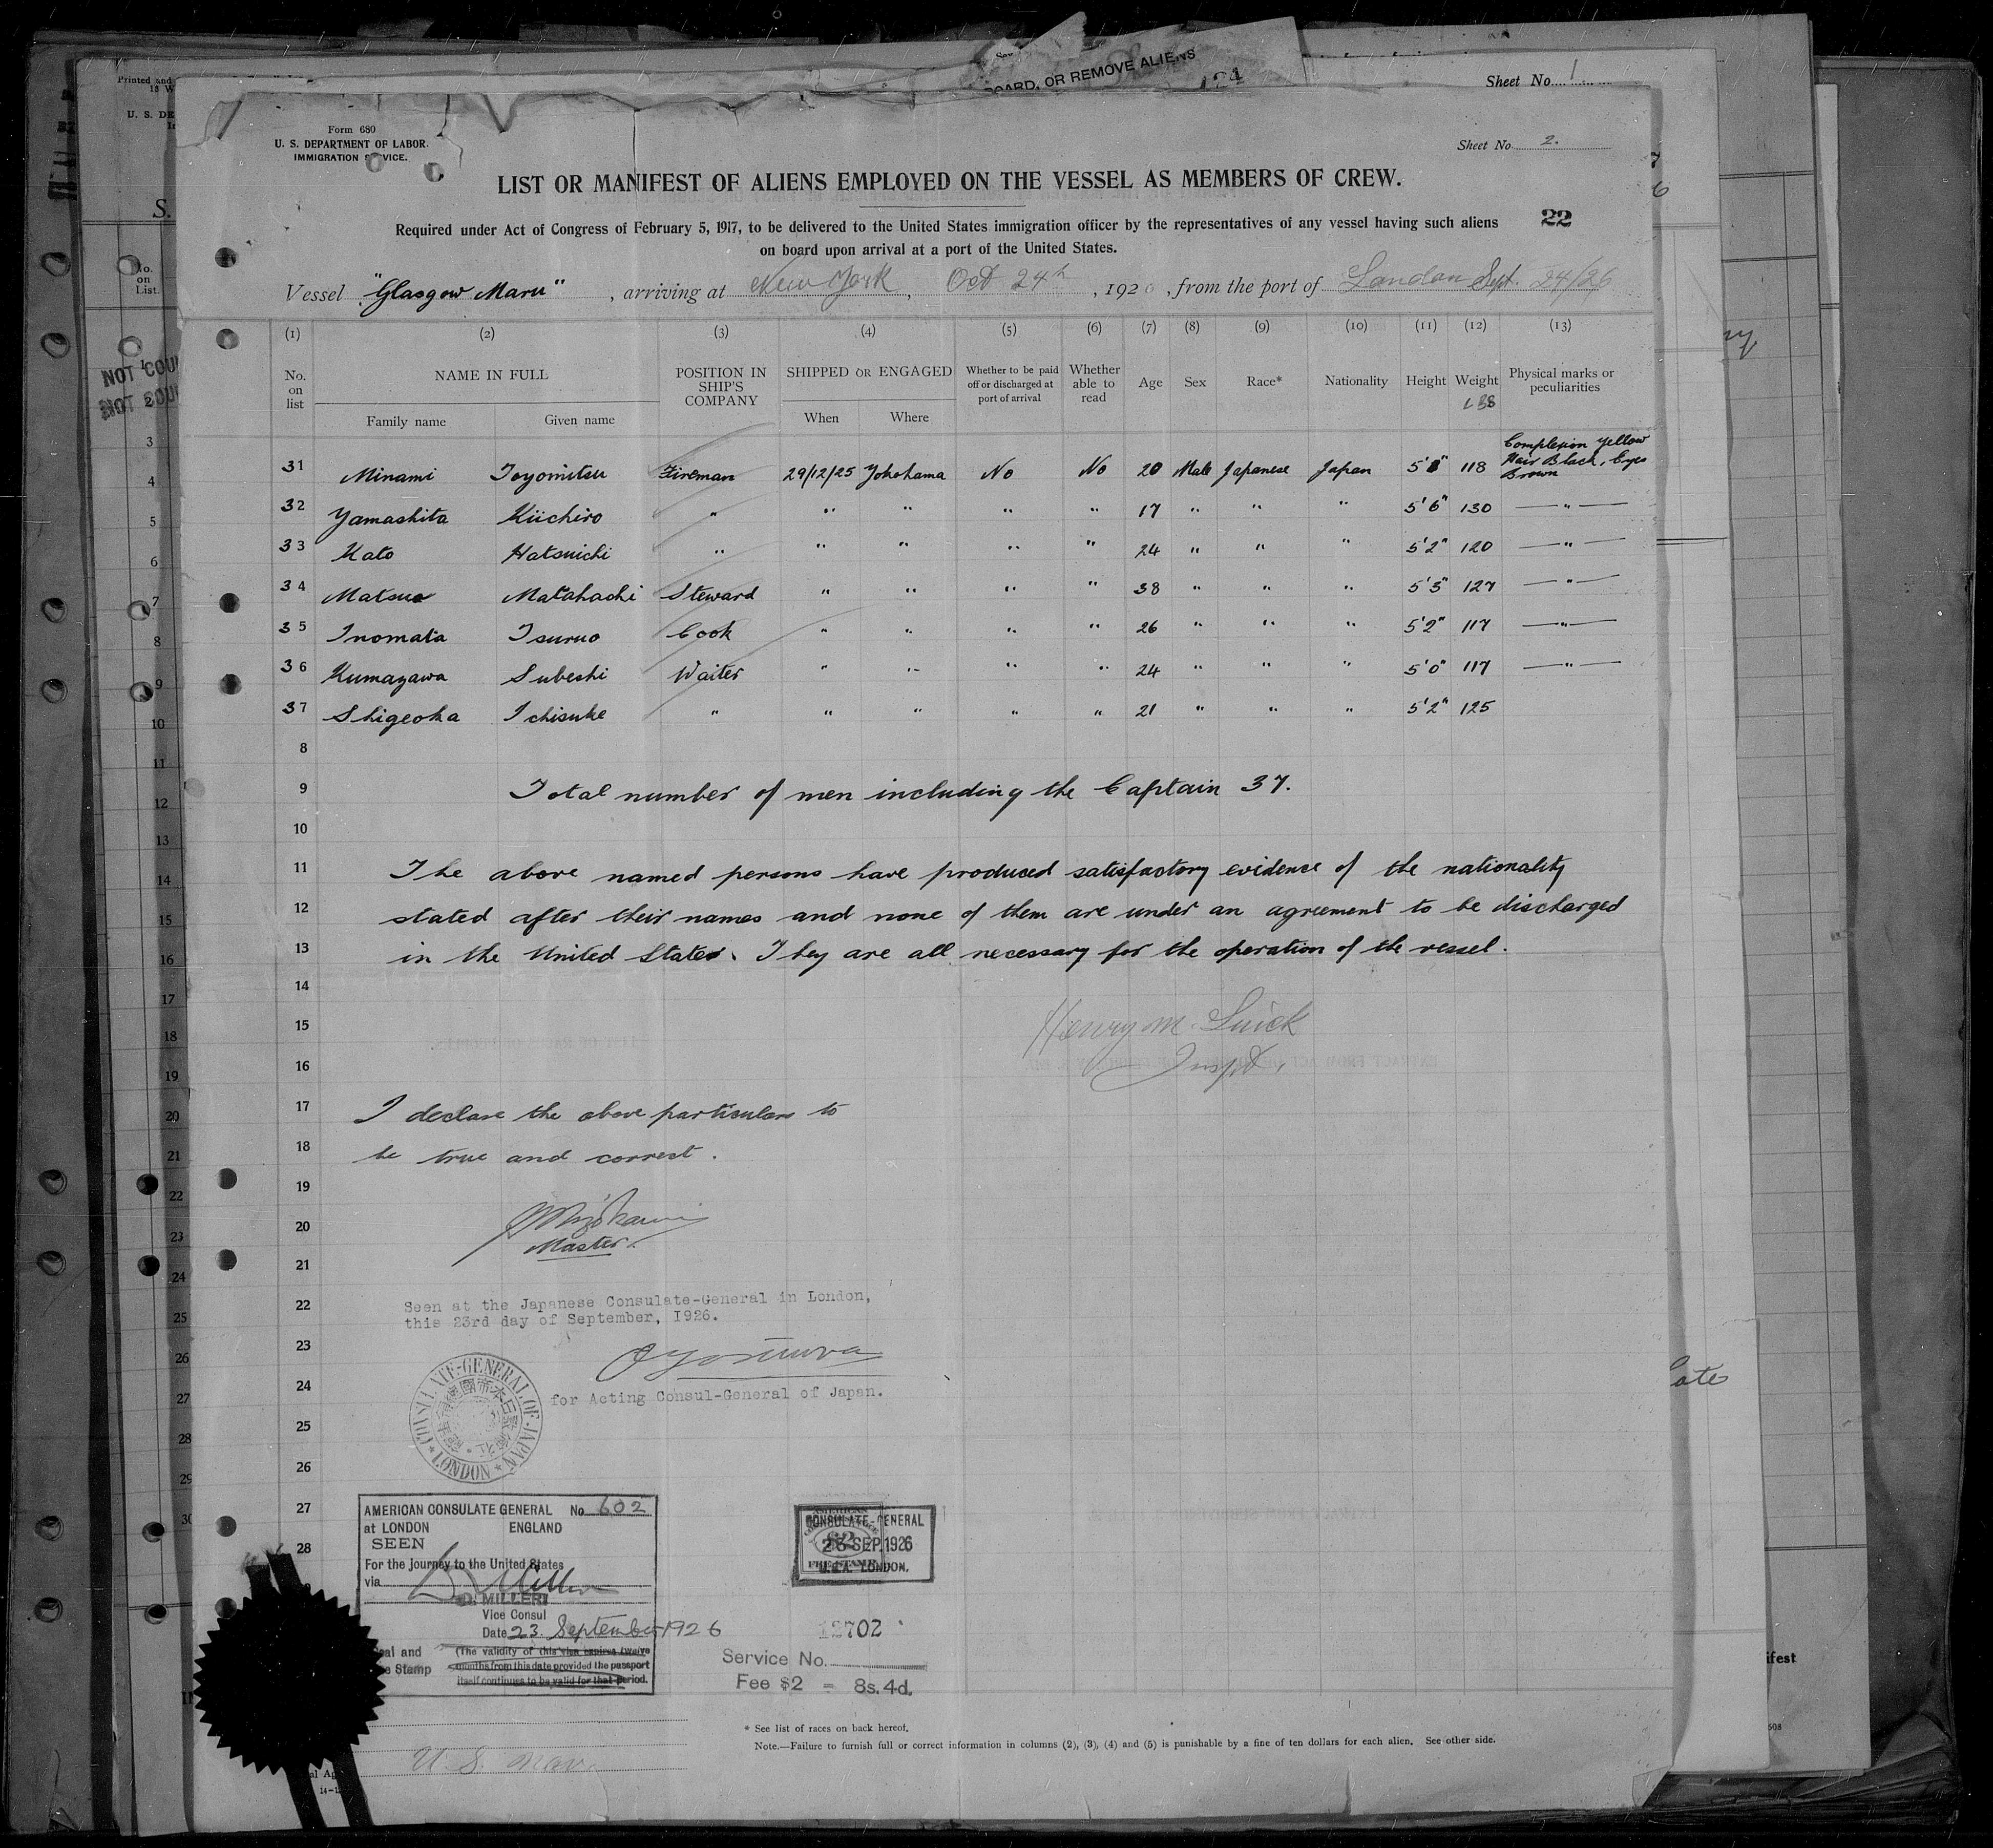 Printed and
U. S. DE
S.
No.
on
List.
NOT COU
NOT COU
BOARD, OR REMOVE ALIENS
Sheet No. 1
Form 680
U. S. DEPARTMENT OF LABOR
IMMIGRATION SERVICE.
Sheet No. 2.
LIST OR MANIFEST OF ALIENS EMPLOYED ON THE VESSEL AS MEMBERS OF CREW.
22
Required under Act of Congress of February 5, 1917, to be delivered to the United States immigration officer by the representatives of any vessel having such aliens
on board upon arrival at a port of the United States.
Vessel "Glasgow Maru", arriving at New York, Oct 24th, 1926, from the port of London Sept. 24/26
(1) (2) (3) (4) (5) (6) (7) (8) (9) (10) (11) (12) (13)
No. on list NAME IN FULL POSITION IN SHIP'S COMPANY SHIPPED OR ENGAGED Whether to be paid off or discharged at port of arrival Whether able to read Age Sex Race* Nationality Height Weight Physical marks or peculiarities
Family name Given name When Where
Complexion Yellow
Hair Black, Eyes
Brown
31 Minami Toyomitsu Fireman 29/12/25 Yokohama No No 20 Male Japanese Japan 118
32 Yamashita Kiichiro " " " " " 17 " " " 5'6" 130 — " —
33 Kato Hatsuichi " " " " " 24 " " " 5'2" 120 — " —
34 Matsuo Matahachi Steward " " " " 38 " " " 5'3" 127 — " —
35 Inomata Tsuruo Cook " " " " 26 " " " 5'2" 117 — " —
36 Kumagawa Subeshi Waiter " " " " 24 " " " 5'0" 117 — " —
37 Shigeoka Ichisuke " " " " " 21 " " " 5'2" 125
8
9 Total number of men including the Captain 37.
10
11 The above named persons have produced satisfactory evidence of the nationality
12 stated after their names and none of them are under an agreement to be discharged
13 in the United States. They are all necessary for the operation of the vessel.
14
15 Henry M.
16 Inspt.
17 I declare the above particulars to
18 be true and correct.
19
20 Master.
21
22 Seen at the Japanese Consulate-General in London,
this 23rd day of September, 1926.
23
24 for Acting Consul-General of Japan.
25
26
CONSULATE-GENERAL OF JAPAN
LONDON
27 AMERICAN CONSULATE GENERAL No 602
at LONDON ENGLAND
SEEN
28 For the journey to the United States
via
D. Miller
D. MILLER
Vice Consul
Date 23 September 1926
(The validity of this visa expires twelve
months from this date provided the passport
itself continues to be valid for that period.
Seal and
Stamp
CONSULATE-GENERAL
23 SEP. 1926
U.S.A. LONDON.
12702
Service No.
Fee $2 = 8s. 4d.
* See list of races on back hereof.
Note.—Failure to furnish full or correct information in columns (2), (3), (4) and (5) is punishable by a fine of ten dollars for each alien. See other side.
ifest